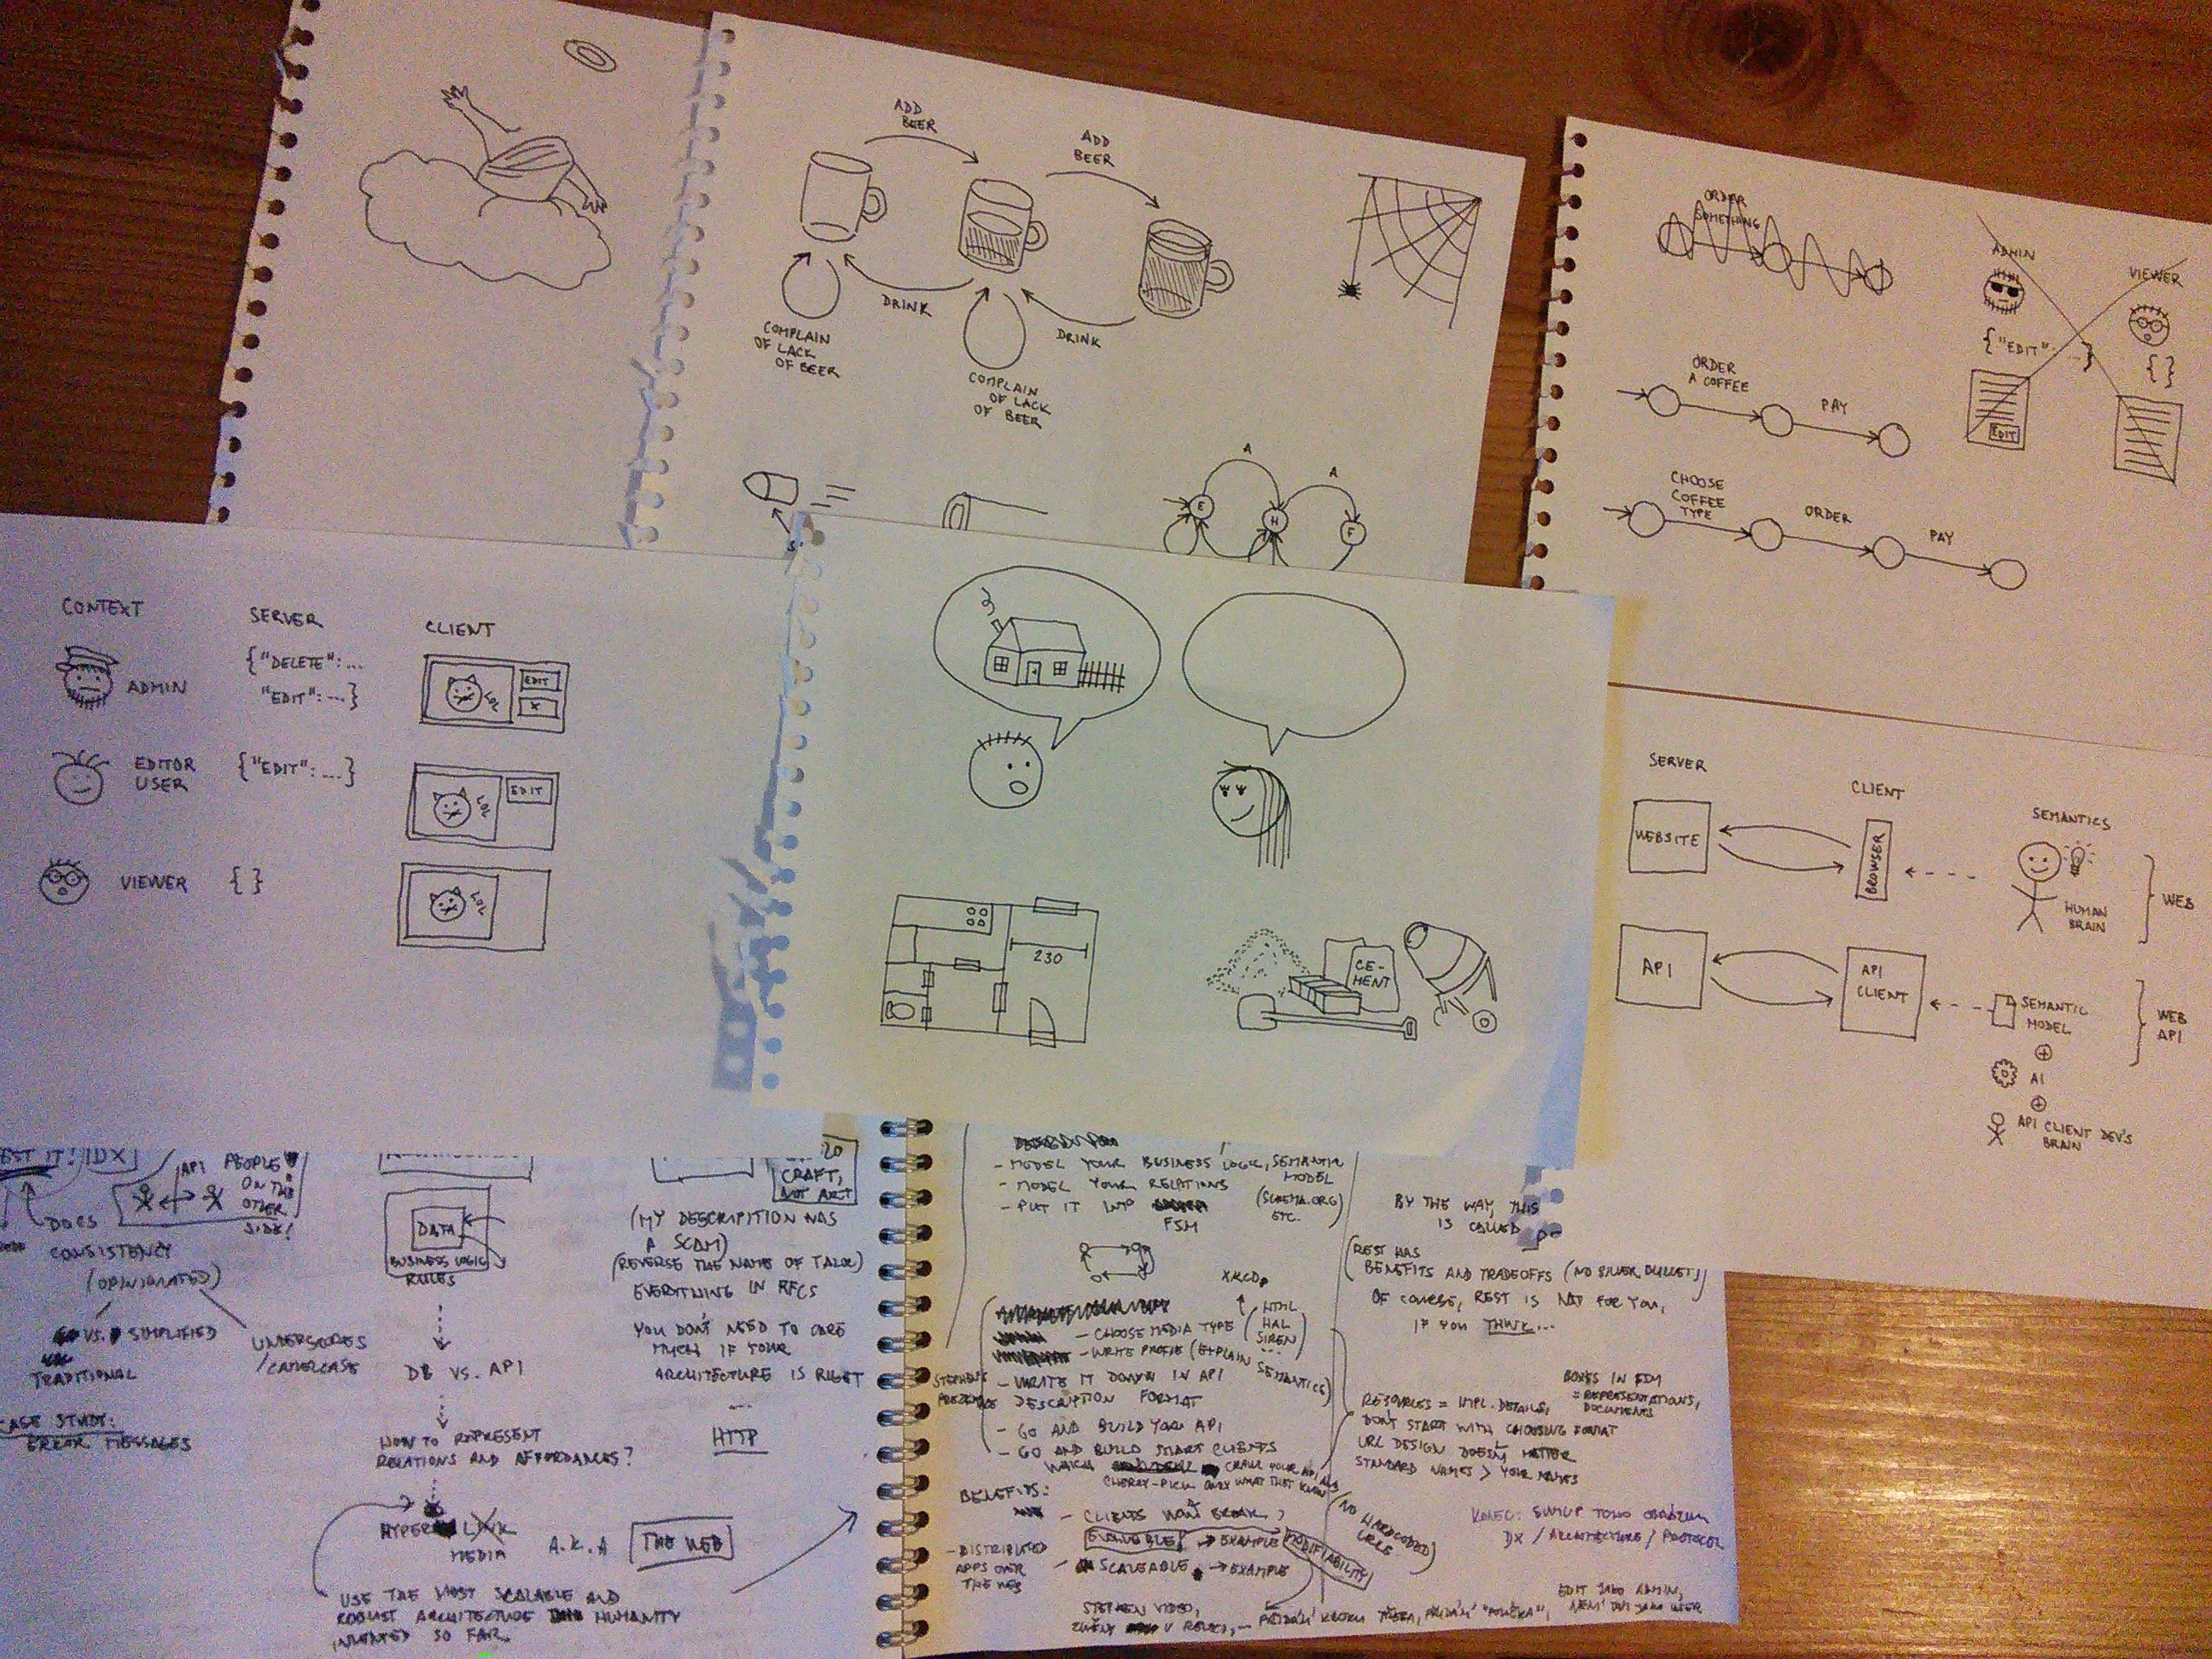 ADD
BEER
ADD
BEER
DRINK
DRINK
COMPLAIN
OF LACK
OF BEER
COMPLAIN
OF LACK
OF BEER
A
A
E
H
F
S
ORDER
SOMETHING
ADMIN
VIEWER
{"EDIT": ...}
{}
EDIT
ORDER
A COFFEE
PAY
CHOOSE
COFFEE
TYPE
ORDER
PAY
CONTEXT
SERVER
CLIENT
ADMIN
{"DELETE": ...
"EDIT": ...}
LOL
EDIT
X
EDITOR
USER
{"EDIT": ...}
LOL
EDIT
VIEWER
{}
LOL
230
CE-
MENT
SERVER
CLIENT
SEMANTICS
WEBSITE
BROWSER
HUMAN
BRAIN
WEB
API
API
CLIENT
SEMANTIC
MODEL
WEB
API
AI
API CLIENT DEV'S
BRAIN
EST IT! DX
API
PEOPLE
ON THE
OTHER
SIDE!
DOCS
CONSISTENCY
(OPINIONATED)
VS. SIMPLIFIED
TRADITIONAL
UNDERSCORES
/CAMELCASE
CASE STUDY:
ERROR MESSAGES
DATA
BUSINESS LOGIC
RULES
DB VS. API
HOW TO REPRESENT
RELATIONS AND AFFORDANCES?
HYPER LINK
MEDIA
A.K.A
THE WEB
USE THE MOST SCALABLE AND
ROBUST ARCHITECTURE HUMANITY
INVENTED SO FAR.
20
CRAFT,
NOT ART
(MY DESCRIPTION WAS
A SCAM)
(REVERSE THE NAME OF TALK)
EVERYTHING IN RFCS
YOU DON'T NEED TO CARE
MUCH IF YOUR
ARCHITECTURE IS RIGHT
...
HTTP
- MODEL YOUR BUSINESS LOGIC, SEMANTIC
MODEL
- MODEL YOUR RELATIONS
(SCHEMA.ORG)
ETC.
- PUT IT INTO
FSM
XKCD
- CHOOSE MEDIA TYPE
HTML
HAL
SIREN
...
- WRITE PROFILE (EXPLAIN
SEMANTICS)
STEPHEN'S
- WRITE IT DOWN IN API
DESCRIPTION FORMAT
- GO AND BUILD YOUR API
- GO AND BUILD SMART CLIENTS
WHICH CRAWL YOUR API AND
CHERRY-PICK ONLY WHAT THEY KNOW
BENEFITS:
- CLIENTS WON'T BREAK
→ EXAMPLE
MODIFIABILITY
(NO
HARDCODED
URLS)
- DISTRIBUTED
APPS OVER
THE WEB
SCALEABLE → EXAMPLE
STEPHEN VIDEO,
BY THE WAY, THIS
IS CALLED
(REST HAS
BENEFITS AND TRADEOFFS (NO SILVER BULLET))
OF COURSE, REST IS NOT FOR YOU,
IF YOU THINK...
BOXES IN FSM
= REPRESENTATIONS,
DOCUMENTS
RESOURCES = IMPL. DETAILS,
DON'T START WITH CHOOSING FORMAT
URL DESIGN DOESN'T MATTER
STANDARD NAMES > YOUR NAMES
KONEC: SUMUP TOHO
DX / ARCHITECTURE / PROTOCOL
EDIT JAKO ADMIN,
NENÍ JAKO USER